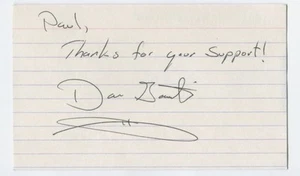 Paul,
Thanks for your Support!
Dan